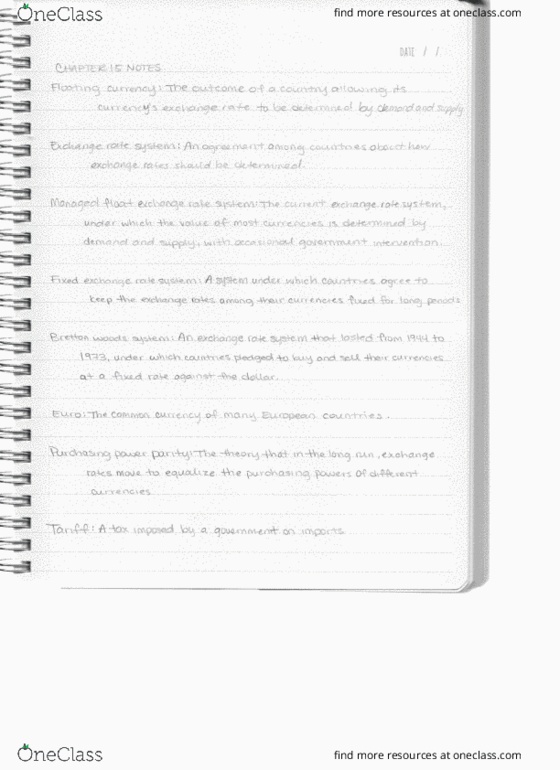 OneClass
find more resources at oneclass.com
DATE / /
CHAPTER 15 NOTES
Floating currency: The outcome of a country allowing its
currency's exchange rate to be determined by demand and supply
Exchange rate system: An agreement among countries about how
exchange rates should be determined.
Managed float exchange rate system: The current exchange rate system,
under which the value of most currencies is determined by
demand and supply, with occasional government intervention.
Fixed exchange rate system: A system under which countries agree to
keep the exchange rates among their currencies fixed for long periods
Bretton woods system: An exchange rate system that lasted from 1944 to
1973, under which countries pledged to buy and sell their currencies
at a fixed rate against the dollar.
Euro: The common currency of many European countries.
Purchasing power parity: The theory that in the long run, exchange
rates move to equalize the purchasing powers of different
currencies
Tariff: A tax imposed by a government on imports
OneClass
find more resources at oneclass.com